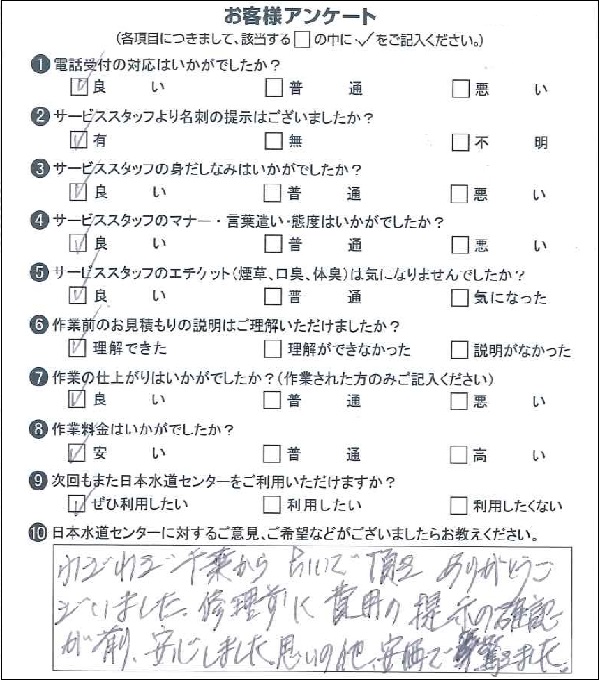 お客様アンケート
(各項目につきまして、該当する□の中に✓をご記入ください。)
❶電話受付の対応はいかがでしたか?
☑良い □普通 □悪い
❷サービススタッフより名刺の提示はございましたか?
☑有 □無 □不明
❸サービススタッフの身だしなみはいかがでしたか?
☑良い □普通 □悪い
❹サービススタッフのマナー・言葉遣い・態度はいかがでしたか?
☑良い □普通 □悪い
❺サービススタッフのエチケット(煙草、口臭、体臭)は気になりませんでしたか?
☑良い □普通 □気になった
❻作業前のお見積もりの説明はご理解いただけましたか?
☑理解できた □理解ができなかった □説明がなかった
❼作業の仕上がりはいかがでしたか?(作業された方のみご記入ください)
☑良い □普通 □悪い
❽作業料金はいかがでしたか?
☑安い □普通 □高い
❾次回もまた日本水道センターをご利用いただけますか?
☑ぜひ利用したい □利用したい □利用したくない
❿日本水道センターに対するご意見、ご希望などがございましたらお教えください。
わざわざ千葉から 頂き ありがとうご
ざいました、修理前に費用の提示の確認
が有り、安心しました 思いの他、安価で 驚きました。